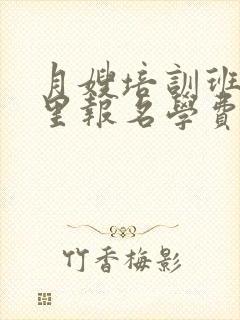 月嫂培訓班
里報名學費
竹香梅影